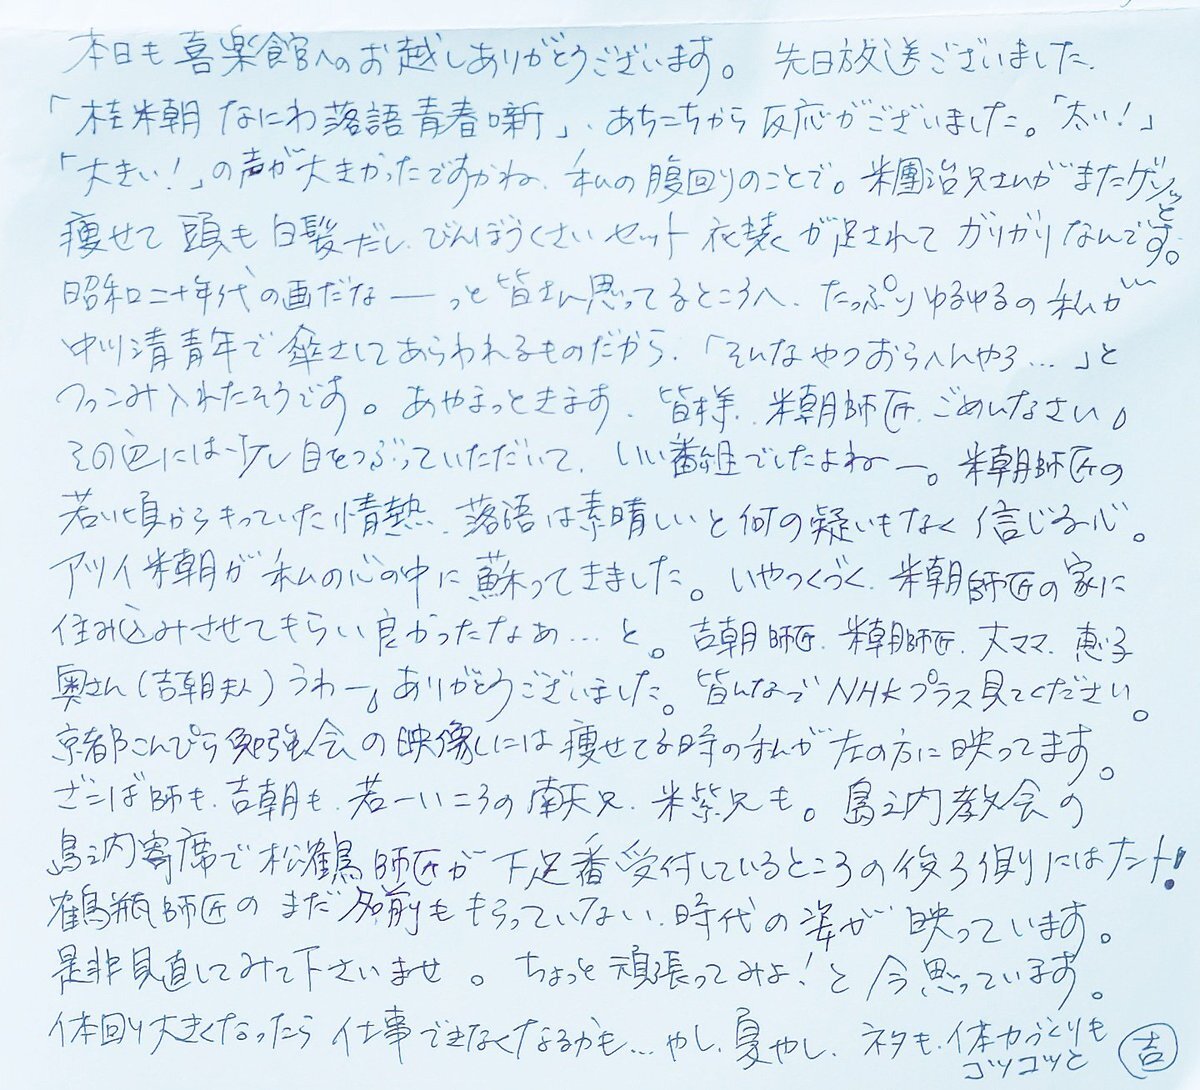 本日も喜楽館へのお越しありがとうございます。先日放送ございました、
「桂米朝なにわ落語青春噺」、あちこちから反応がございました。「太い!」
「大きい!」の声が大きかったですかね、私の腹回りのことで。米團治兄さんがまたゲッソリと
痩せて頭も白髪だし、びんぼうくさいセット衣装が足されてガリガリなんです。
昭和二十年代の画だな――っと皆さん思ってるところへ、たっぷりゆるゆるの私が
中川清青年で傘さしてあらわれるものだから、「そんなやつおらへんやろ…」と
つっこみ入れたそうです。あやまっときます、皆様、米朝師匠、ごめんなさい。
その色には少し目をつぶっていただいて、いい番組でしたよねー。米朝師匠の
若い頃からもっていた情熱、落語は素晴しいと何の疑いもなく信じる心。
アツイ米朝が私の心の中に蘇ってきました。いやつくづく、米朝師匠の家に
住み込みさせてもらい良かったなぁ…と。吉朝師匠、米朝師匠、大ママ、恵子
奥さん(吉朝夫人)うわー。ありがとうございました。皆んなでNHKプラス見てください。
京都こんぴら勉強会の映像には痩せてる時の私が左の方に映ってます。
ざこば師も、吉朝も、若ーいころの南天兄、米紫兄も。島之内教会の
島之内寄席で松鶴師匠が下足番受付しているところの後ろ側にはナント!
鶴瓶師匠のまだ名前ももらっていない時代の姿が映っています。
是非見直してみて下さいませ。ちょっと頑張ってみよ!と今思っています。
体回り大きくなったら仕事できなくなるかも…やし、夏やし、ネタも、体力づくりも
コツコツと 吉